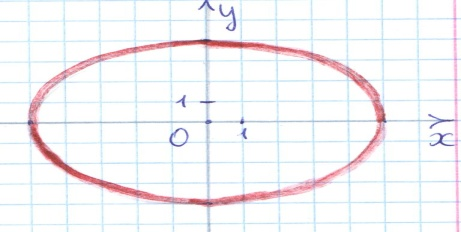 y
1
0 1
x